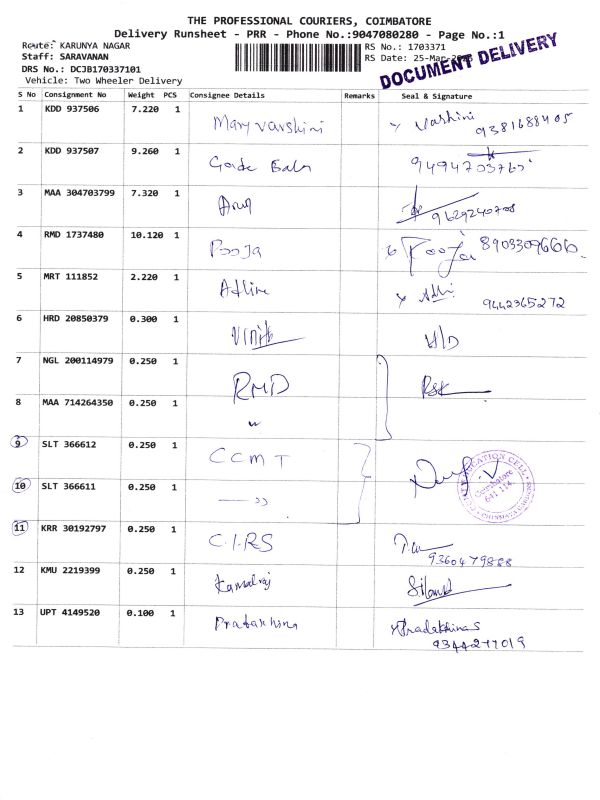 THE PROFESSIONAL COURIERS, COIMBATORE
Delivery Runsheet - PRR - Phone No.:9047080280 - Page No.:1
Route: KARUNYA NAGAR
RS No.: 1703371
Staff: SARAVANAN
RS Date: 25-Mar-
DRS No.: DCJB170337101
Vehicle: Two Wheeler Delivery
DOCUMENT DELIVERY
S No Consignment No Weight PCS Consignee Details Remarks Seal & Signature
1 KDD 937506 7.220 1 Mary varshini Varshini
9381688405
2 KDD 937507 9.260 1
3 MAA 304703799 7.320 1 Arun
9629240708
4 RMD 1737480 10.120 1 Pooja Pooja 8903309666
5 MRT 111852 2.220 1
9442365272
6 HRD 20850379 0.300 1
7 NGL 200114979 0.250 1 RMD
8 MAA 714264350 0.250 1 "
9 SLT 366612 0.250 1 CCMT
10 SLT 366611 0.250 1 — "
11 KRR 30192797 0.250 1 C.I.R.S
9360479888
12 KMU 2219399 0.250 1 Kamalraj
13 UPT 4149520 0.100 1 Pradakhina
Pradakhina S
9344277019